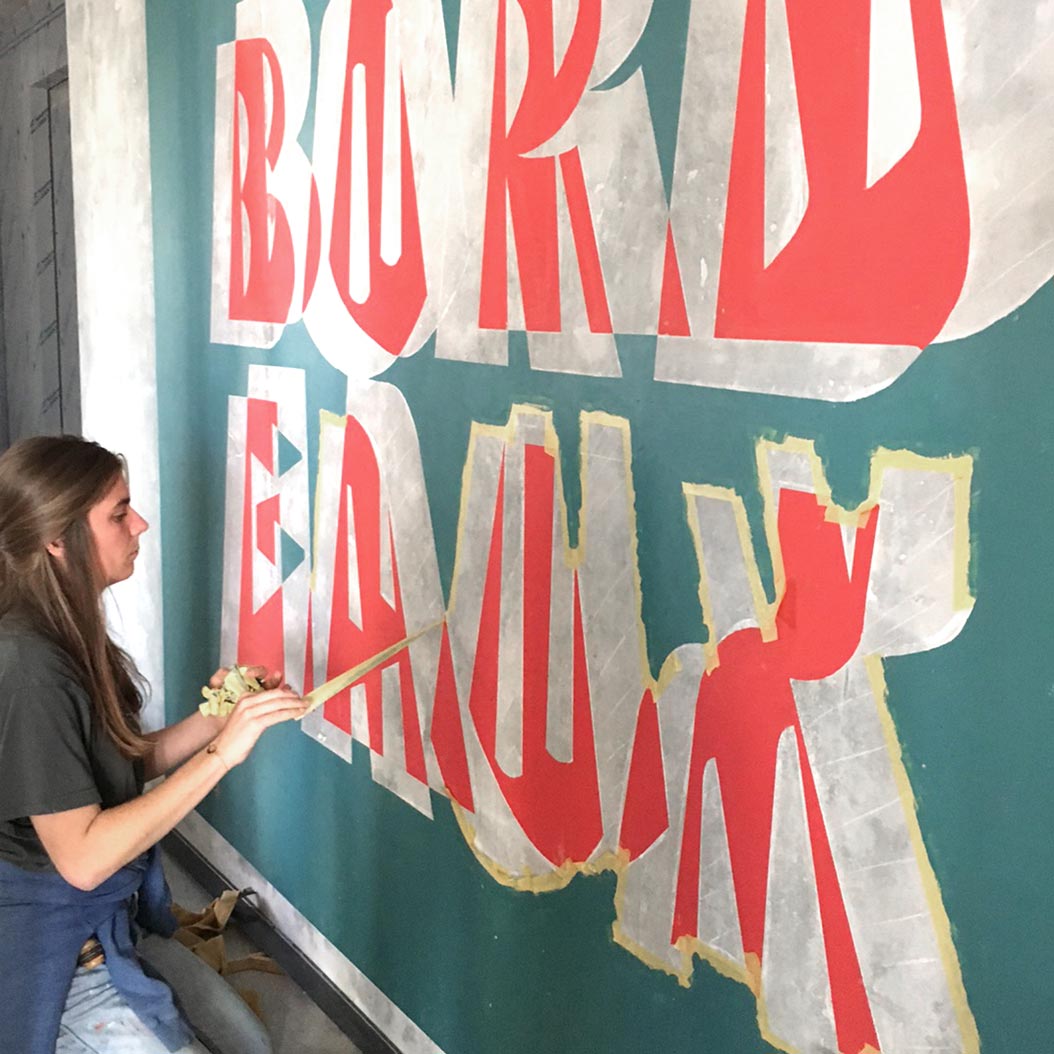 BORD
EAUX